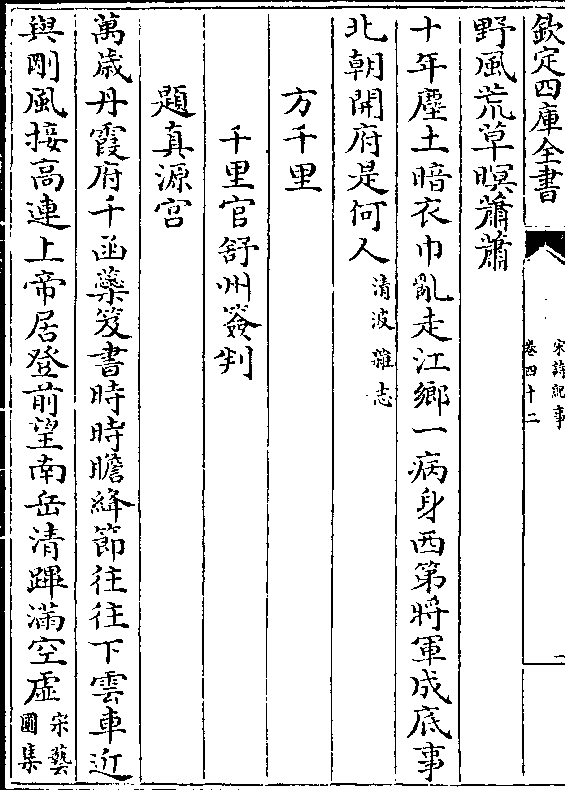 欽定四庫全書
宋詩紀事
卷四十二
一
野風荒草暝蕭蕭
十年塵土暗衣巾亂走江鄉一病身西第將軍成底事
北朝開府是何人清波雜志
方千里
千里官舒州簽判
題真源宫
萬歳丹霞府千函蘂笈書時時瞻絳節往往下雲車近
與剛風接高連上帝居登前望南岳清蹕滿空虛宋藝圃集